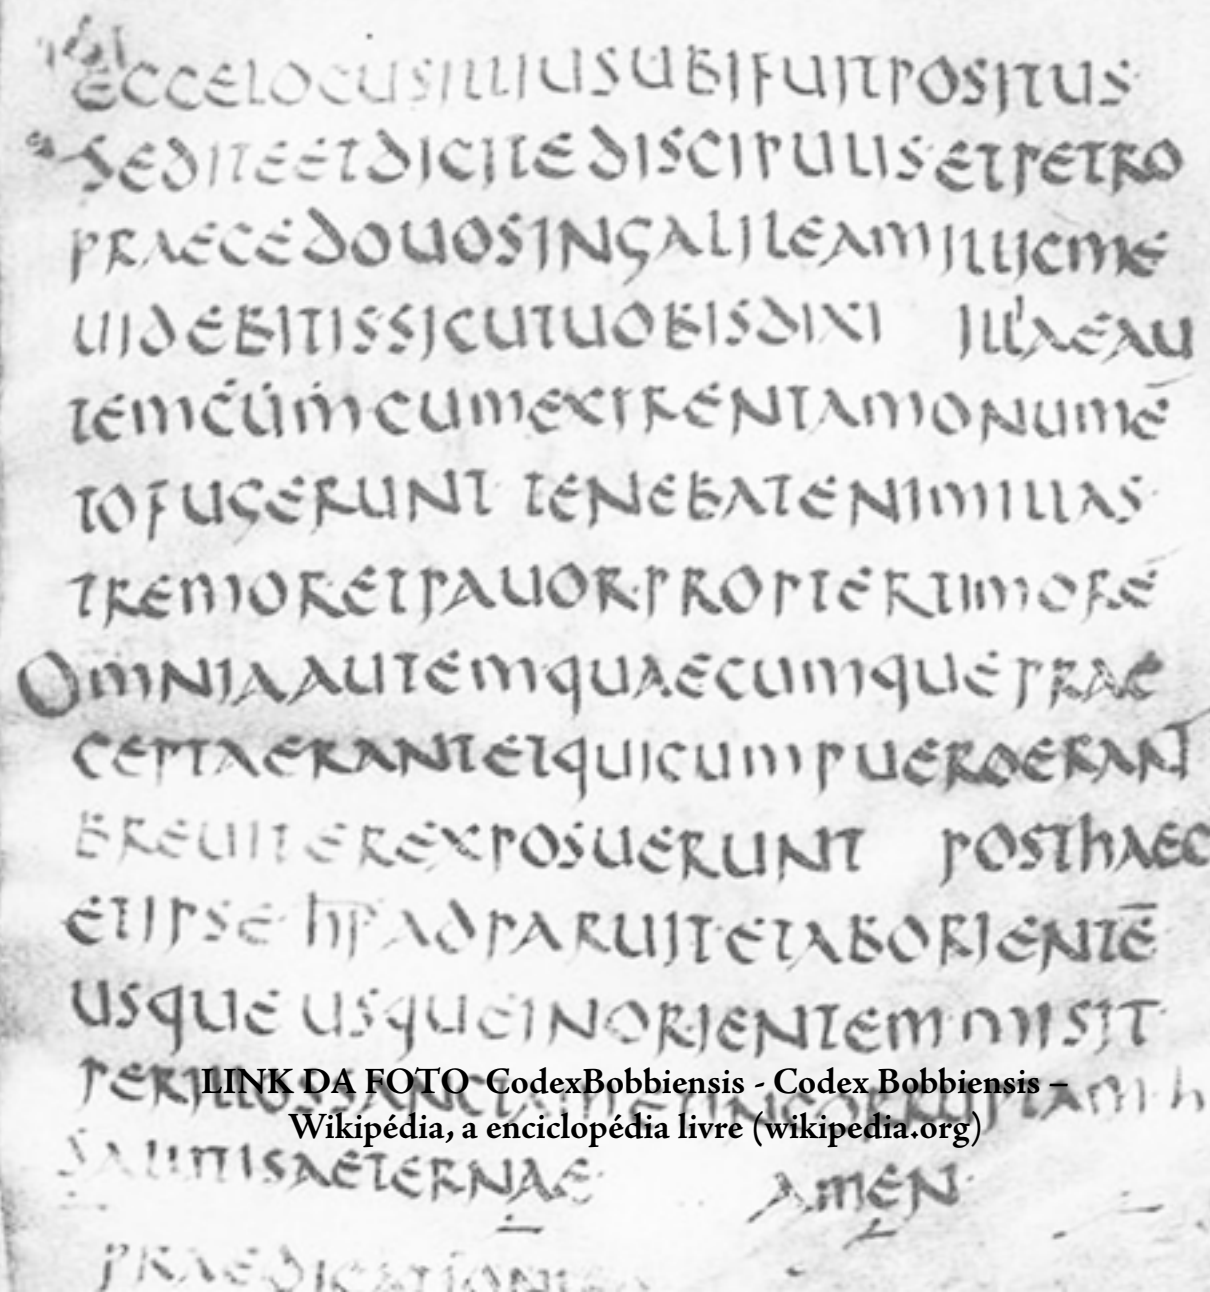 ECCELOCUSILLIUSUBIFUITPOSITUS
SEDITEETDICITEDISCIPULISETPETRO
PRAECEDOUOSINGALILEAMILLICME
UIDEBITISSICUTUOBISDIXI ILLAEAU
TEMCUMCUMEXIRENTAMONUMĒ
TOFUGERUNT TENEBATENIMILLAS
TREMORETPAUORPROPTERTIMORĒ
OMNIAAUTEMQUAECUMQUEPRAE
CEPTAERANTETQUICUMPUEROERANT
BREUITEREXPOSUERUNT POSTHAEC
ETIPSE HPADPARUITETABORIENTĒ
USQUE USQUEINORIENTEM MISIT
LINK DA FOTO CodexBobbiensis - Codex Bobbiensis –
Wikipédia, a enciclopédia livre (wikipedia.org)
SALUTISAETERNAE AMEN